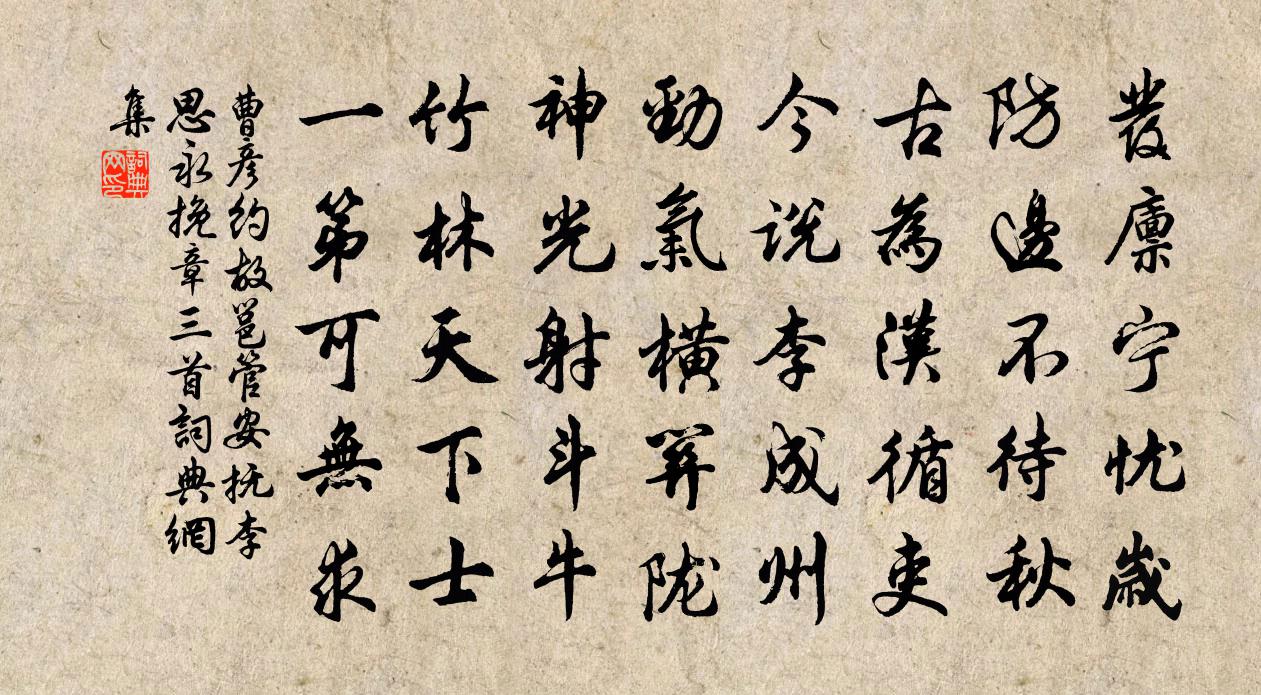 發廪宁忧歲
防邊不待秋
古為漢循吏
今说李成州
勁氣橫關陇
神光射斗牛
竹林天下士
一第可無求
曹彦约故邕管安抚李
思永挽章三首詞典網
集
詞典網印